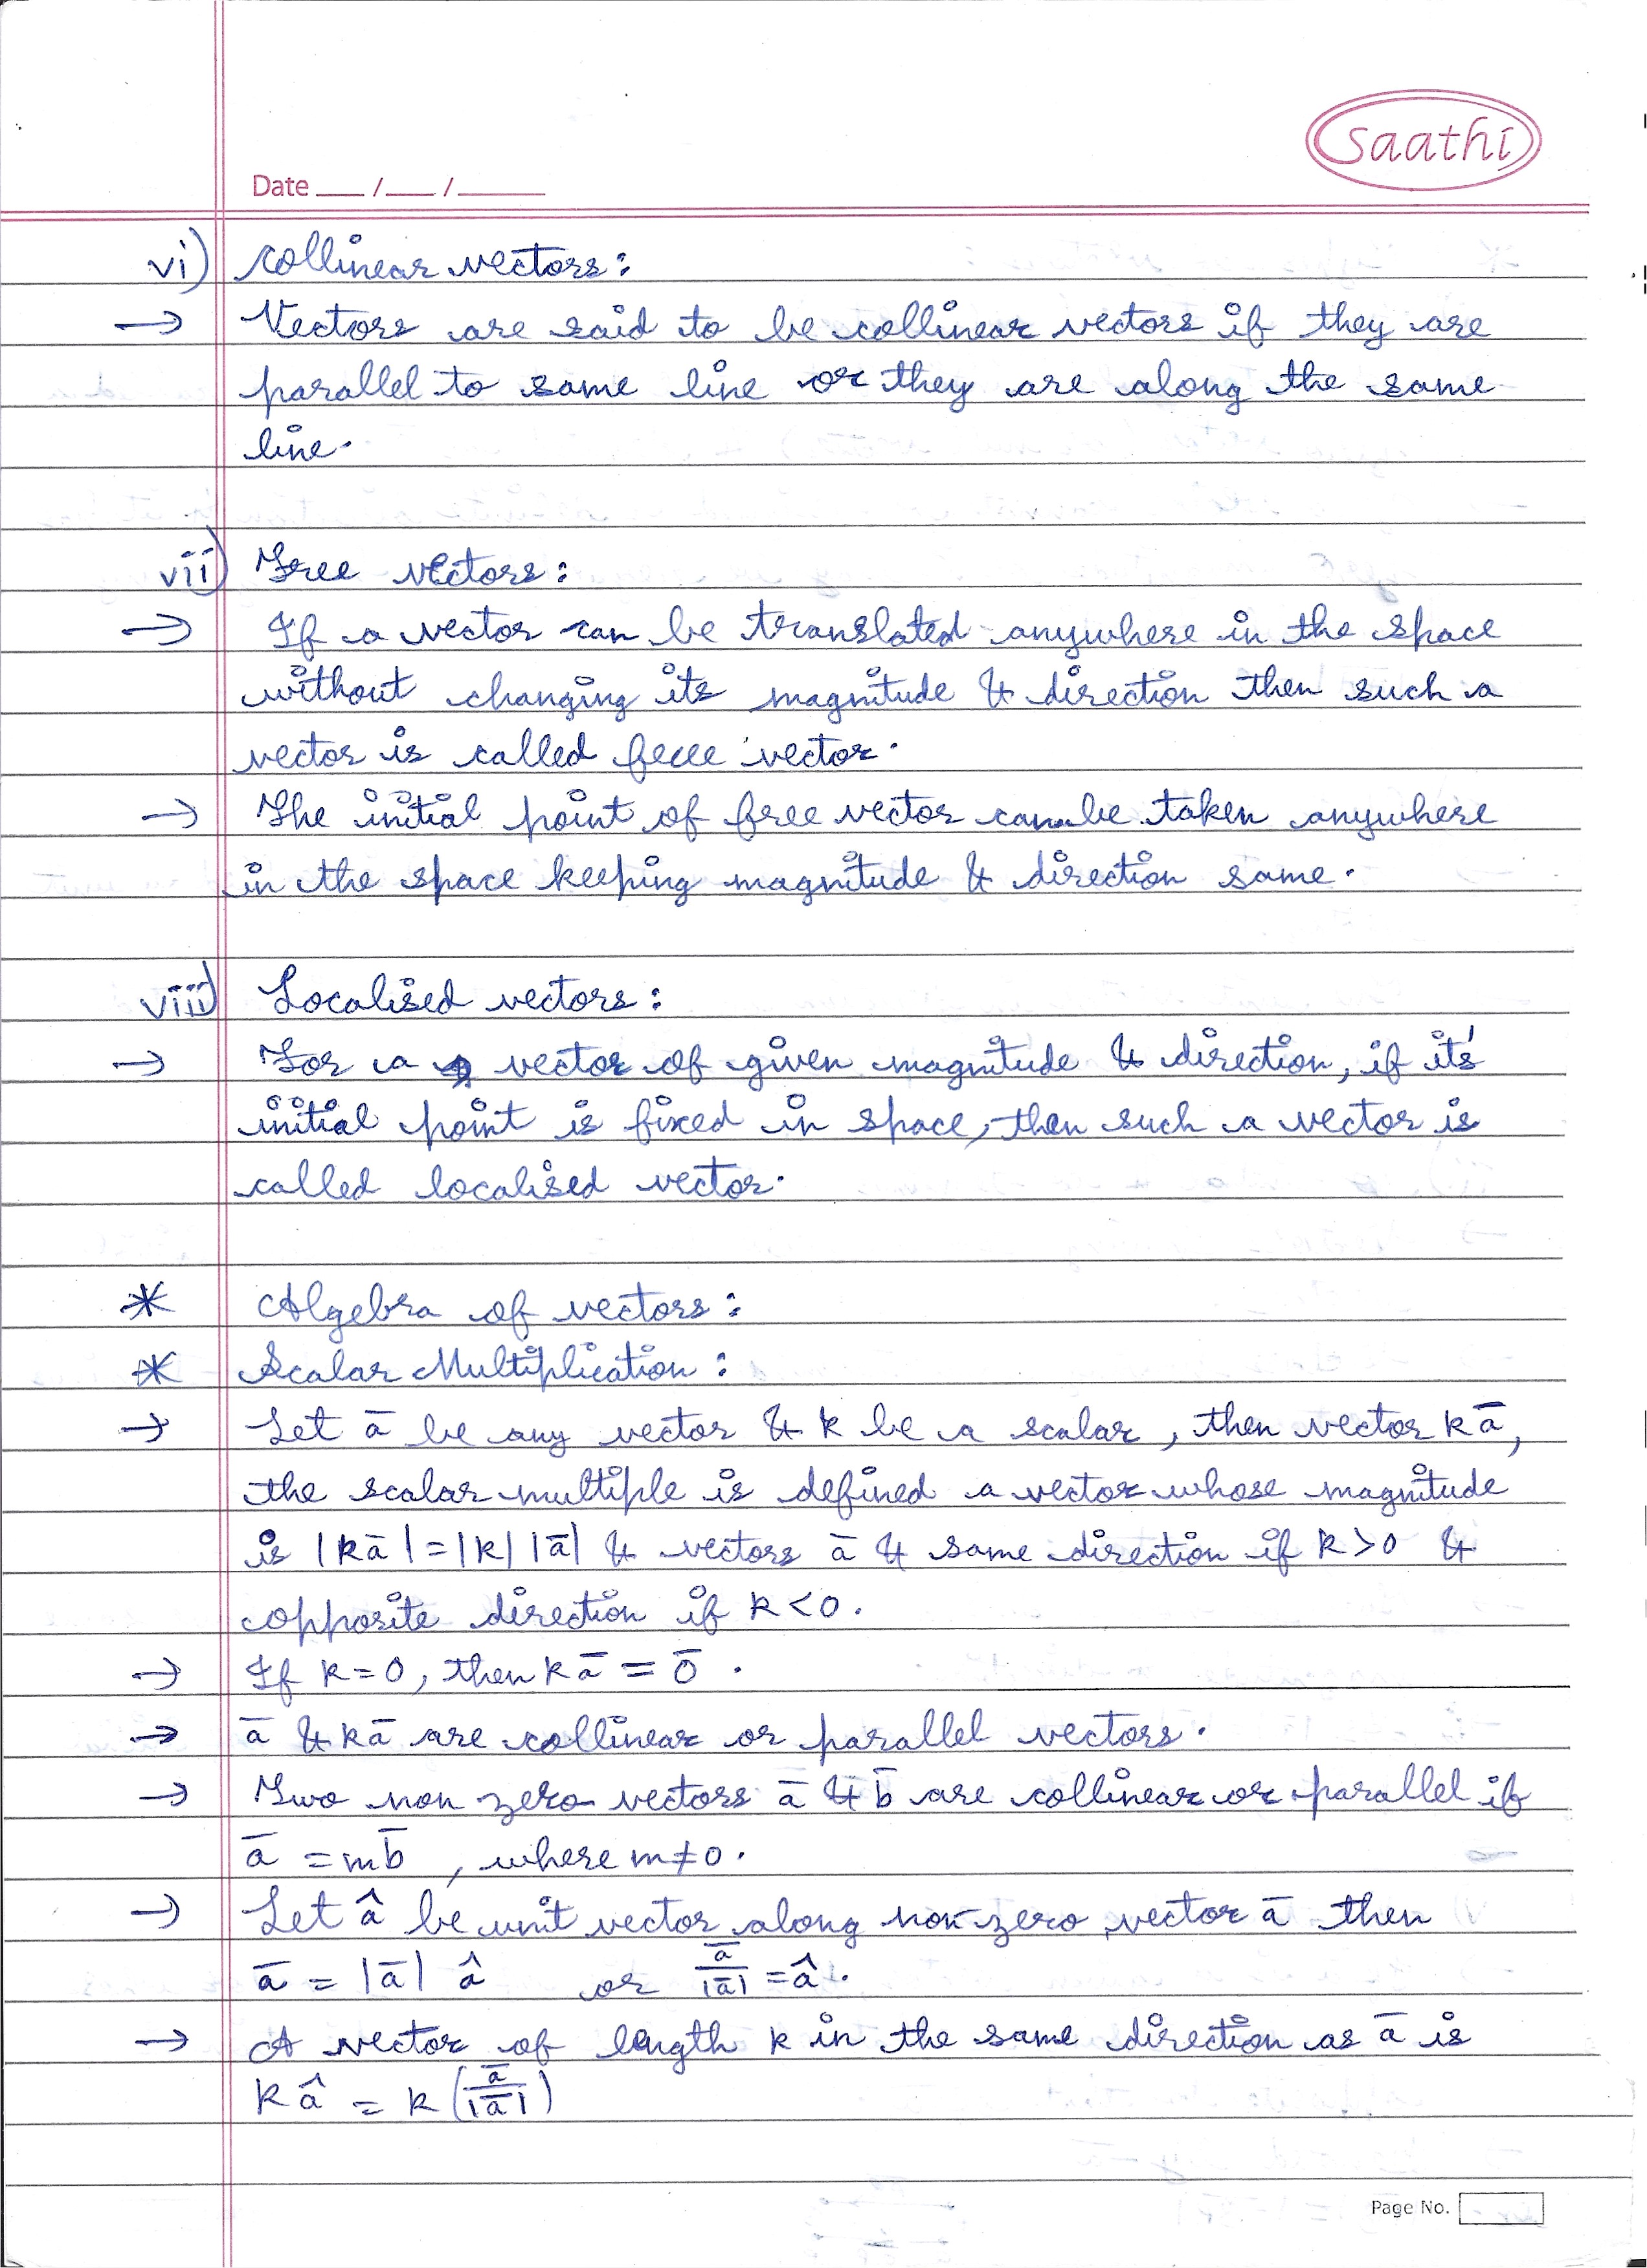 Saathi
Date ___/___/______
vi) Collinear vectors:
→ Vectors are said to be collinear vectors if they are
parallel to same line or they are along the same
line.
vii) Free vectors:
→ If a vector can be translated anywhere in the space
without changing its magnitude & direction then such a
vector is called free vector.
→ The initial point of free vector can be taken anywhere
in the space keeping magnitude & direction same.
viii) Localised vectors:
→ For a vector of given magnitude & direction, if its'
initial point is fixed in space, then such a vector is
called localised vector.
* Algebra of vectors:
* Scalar Multiplication:
→ Let a̅ be any vector & k be a scalar, then vector ka̅,
the scalar multiple is defined a vector whose magnitude
is |ka̅| = |k| |a̅| & vectors a̅ & same direction if k>0 &
opposite direction if k<0.
→ If k=0, then ka̅ = 0̅.
→ a̅ & ka̅ are collinear or parallel vectors.
→ Two non zero vectors a̅ & b̅ are collinear or parallel if
a̅ = mb̅, where m≠0.
→ Let â be unit vector along non-zero vector a̅ then
a̅ = |a̅| â or a̅/|a̅| = â.
→ A vector of length k in the same direction as a̅ is
kâ = k(a̅/|a̅|)
Page No.